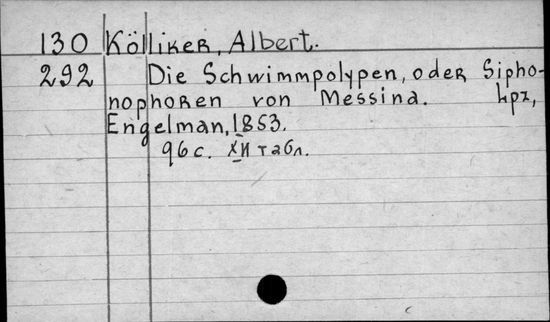 130 Kölliker, Albert.
292 Die Schwimmpolypen, oder Sipho-
nophoren von Messina. Lpz,
Engelman, 1853.
96 с. XII табл.